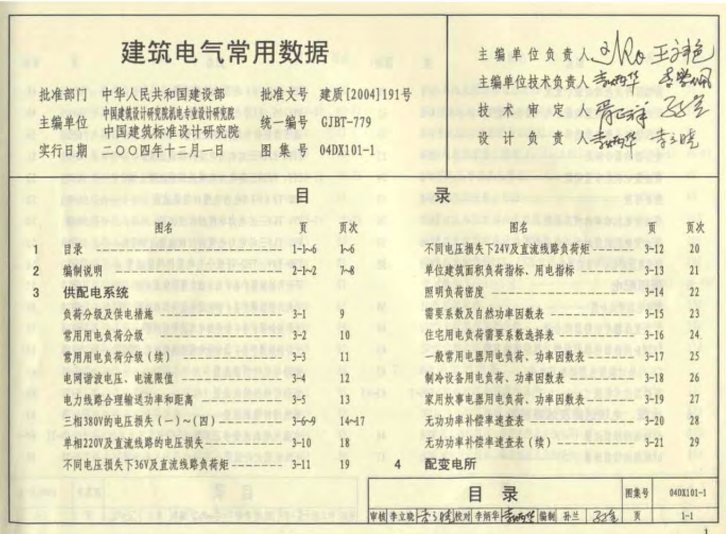 建筑电气常用数据
批准部门 中华人民共和国建设部 批准文号 建质[2004]191号
主编单位 中国建筑设计研究院机电专业设计研究院
中国建筑标准设计研究院 统一编号 GJBT-779
实行日期 二〇〇四年十二月一日 图集号 04DX101-1
主编单位负责人
主编单位技术负责人
技术审定人
设计负责人
目录
图名 页 页次
1 目录 1-1~6 1~6
2 编制说明 2-1~2 7~8
3 供配电系统
负荷分级及供电措施 3-1 9
常用用电负荷分级 3-2 10
常用用电负荷分级(续) 3-3 11
电网谐波电压、电流限值 3-4 12
电力线路合理输送功率和距离 3-5 13
三相380V的电压损失(一)~(四) 3-6~9 14~17
单相220V及直流线路的电压损失 3-10 18
不同电压损失下36V及直流线路负荷矩 3-11 19
图名 页 页次
不同电压损失下24V及直流线路负荷矩 3-12 20
单位建筑面积负荷指标、用电指标 3-13 21
照明负荷密度 3-14 22
需要系数及自然功率因数表 3-15 23
住宅用电负荷需要系数选择表 3-16 24
一般常用电器用电负荷、功率因数表 3-17 25
制冷设备用电负荷、功率因数表 3-18 26
家用炊事电器用电负荷、功率因数表 3-19 27
无功功率补偿率速查表 3-20 28
无功功率补偿率速查表(续) 3-21 29
4 配变电所
目录 图集号 04DX101-1
审核 李立晓 校对 李炳华 编制 孙兰 页 1-1
1